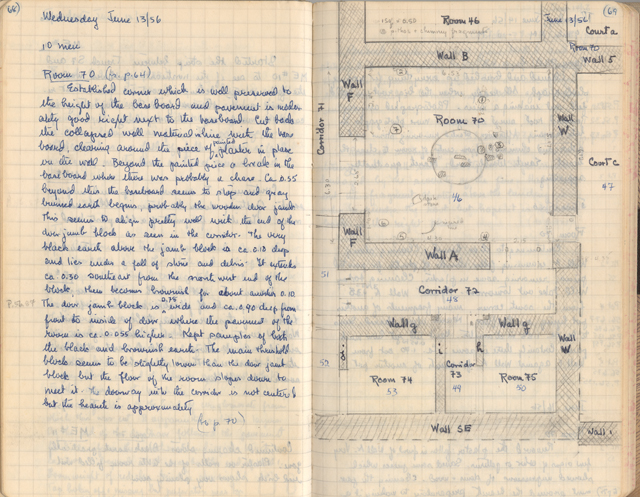 68
Wednesday June 13/56
10 men
Room 70 (fr. p. 64)
Established corner which is well preserved to
the height of the baseboard and pavement is moder-
ately good right next to the baseboard. Cut back
the collapsed wall material in line with the base
board, clearing around the piece of painted plaster in place
on the wall. Beyond the painted piece a break in the
baseboard where there was probably a chase. Ca 0.55
beyond this the baseboard seems to stop and gray
burned earth begins, probably the wooden door jamb.
This seems to align pretty well with the end of the
door jamb block as seen in the corridor. The very
black earth above the jamb block is ca 0.10 deep
and lies under a fall of stones and debris. It extends
ca 0.30 southeast from the northwest end of the
block, then becomes brownish for about another 0.10
The door jamb block is wide and ca. 0.90 deep from
front to inside of door where the pavement of the
room is ca 0.055 higher. Kept samples of both
the black and brownish earth. The main threshold
block seems to be slightly lower than the door jamb
block but the floor of the room slopes down to
meet it. The doorway into the corridor is not centered
but the hearth is approximately
(to p. 70)
69
June 13/56
Room 46
Court a
Wall B
Room 70
Wall 5
Wall F
Corridor 71
Room 70
Wall W
Court c
47
46
Wall F
Wall A
51
Corridor 72
48
Wall g
Wall g
i
h
Wall W
Room 74
53
Corridor 73
49
Room 75
50
Wall SE
Wall i